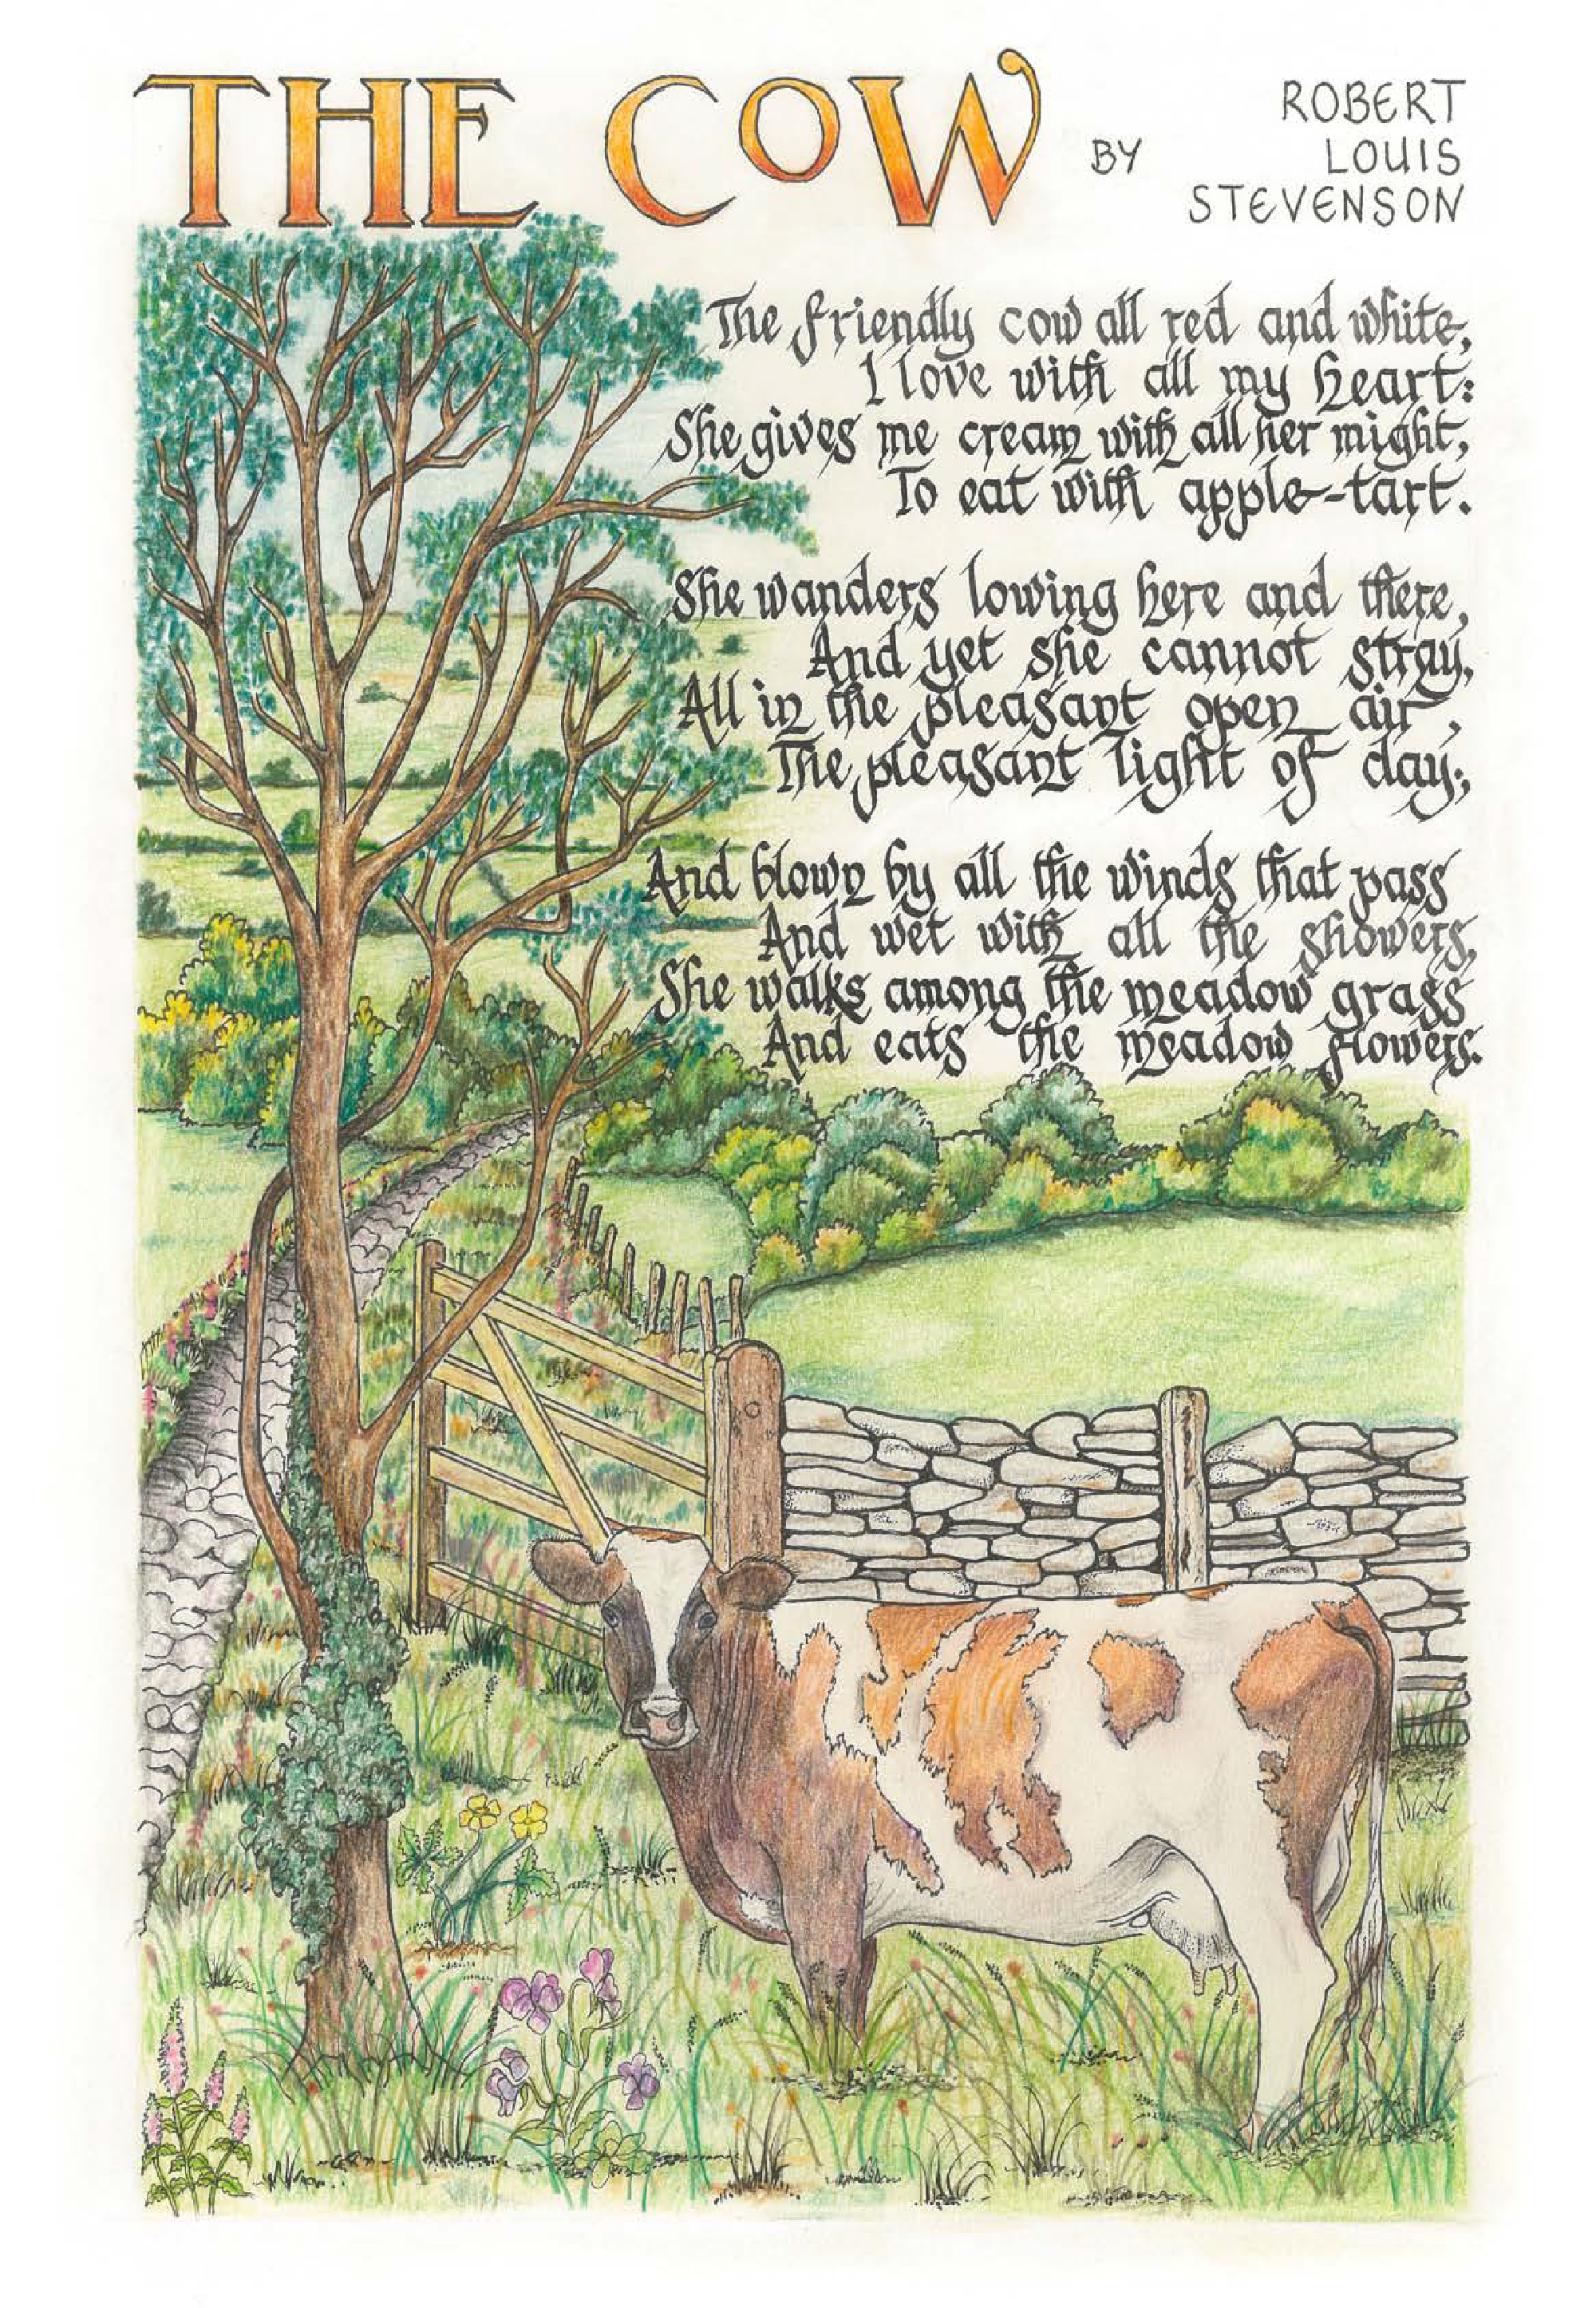 THE COW
BY
ROBERT
LOUIS
STEVENSON
The friendly cow all red and white,
I love with all my heart:
She gives me cream with all her might,
To eat with apple-tart.
She wanders lowing here and there,
And yet she cannot stray,
All in the pleasant open air,
The pleasant light of day;
And blown by all the winds that pass
And wet with all the showers,
She walks among the meadow grass
And eats the meadow flowers.